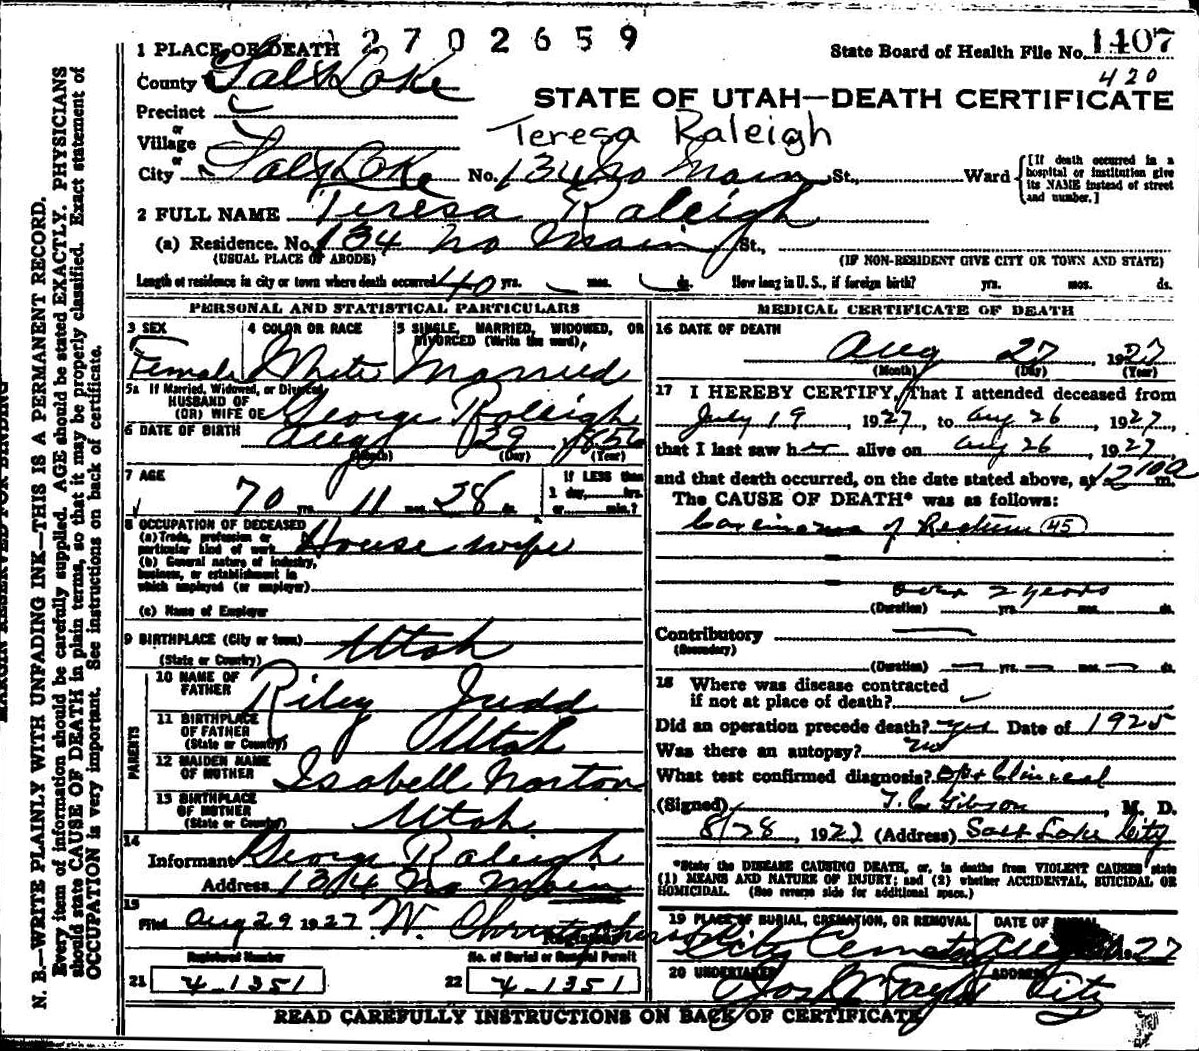 2702659
1 PLACE OF DEATH
State Board of Health File No. 1407
County Salt Lake
420
STATE OF UTAH—DEATH CERTIFICATE
Precinct
or
Village
Teresa Raleigh
or
City Salt Lake No. 134 No Main St., Ward
[If death occurred in a hospital or institution give its NAME instead of street and number.]
2 FULL NAME Teresa Raleigh
(a) Residence. No. 134 No Main St.,
(USUAL PLACE OF ABODE) (IF NON-RESIDENT GIVE CITY OR TOWN AND STATE)
Length of residence in city or town where death occurred 40 yrs. mos. ds. How long in U. S., if foreign birth? yrs. mos. ds.
PERSONAL AND STATISTICAL PARTICULARS
3 SEX Female
4 COLOR OR RACE White
5 SINGLE, MARRIED, WIDOWED, OR DIVORCED (Write the word), Married
5a If Married, Widowed, or Divorced
HUSBAND OF
(OR) WIFE OF George Raleigh
6 DATE OF BIRTH Aug 29 1856
(Month) (Day) (Year)
7 AGE 70 yrs. 11 mos. 28 ds.
If LESS than 1 day, hrs. or min.?
8 OCCUPATION OF DECEASED
(a) Trade, profession or particular kind of work Housewife
(b) General nature of industry, business, or establishment in which employed (or employer)
(c) Name of Employer
9 BIRTHPLACE (City or town)
(State or Country) Utah
PARENTS
10 NAME OF FATHER Riley Judd
11 BIRTHPLACE OF FATHER (State or Country) Utah
12 MAIDEN NAME OF MOTHER Isabell Norton
13 BIRTHPLACE OF MOTHER (State or Country) Utah
14
Informant George Raleigh
Address 134 No Main
15
Filed Aug 29 1927 W. Christopherson
Registrar
Registered Number
21 4-1351
No. of Burial or Removal Permit
22 4-1351
MEDICAL CERTIFICATE OF DEATH
16 DATE OF DEATH
Aug 27, 1927
(Month) (Day) (Year)
17 I HEREBY CERTIFY, That I attended deceased from
July 19, 1927, to Aug 26, 1927
that I last saw her alive on Aug 26, 1927
and that death occurred, on the date stated above, at 1210a m.
The CAUSE OF DEATH* was as follows:
Carcinoma of Rectum 45
over 2 years
(Duration) yrs. mos. ds.
Contributory
(Secondary)
(Duration) yrs. mos. ds.
18 Where was disease contracted
if not at place of death?
Did an operation precede death? yes Date of 1925
Was there an autopsy? no
What test confirmed diagnosis? Clinical
(Signed) T. C. Gibson, M. D.
8/28, 1927 (Address) Salt Lake City
*State the DISEASE CAUSING DEATH, or, in deaths from VIOLENT CAUSES state
(1) MEANS AND NATURE OF INJURY; and (2) whether ACCIDENTAL, SUICIDAL OR
HOMICIDAL. (See reverse side for additional space.)
19 PLACE OF BURIAL, CREMATION, OR REMOVAL City Cemetery
DATE OF BURIAL Aug 1927
20 UNDERTAKER Jos Wm Taylor
ADDRESS City
READ CAREFULLY INSTRUCTIONS ON BACK OF CERTIFICATE
MARGIN RESERVED FOR BINDING
N. B.—WRITE PLAINLY WITH UNFADING INK—THIS IS A PERMANENT RECORD.
Every item of information should be carefully supplied. AGE should be stated EXACTLY. PHYSICIANS
should state CAUSE OF DEATH in plain terms, so that it may be properly classified. Exact statement of
OCCUPATION is very important. See instructions on back of certificate.